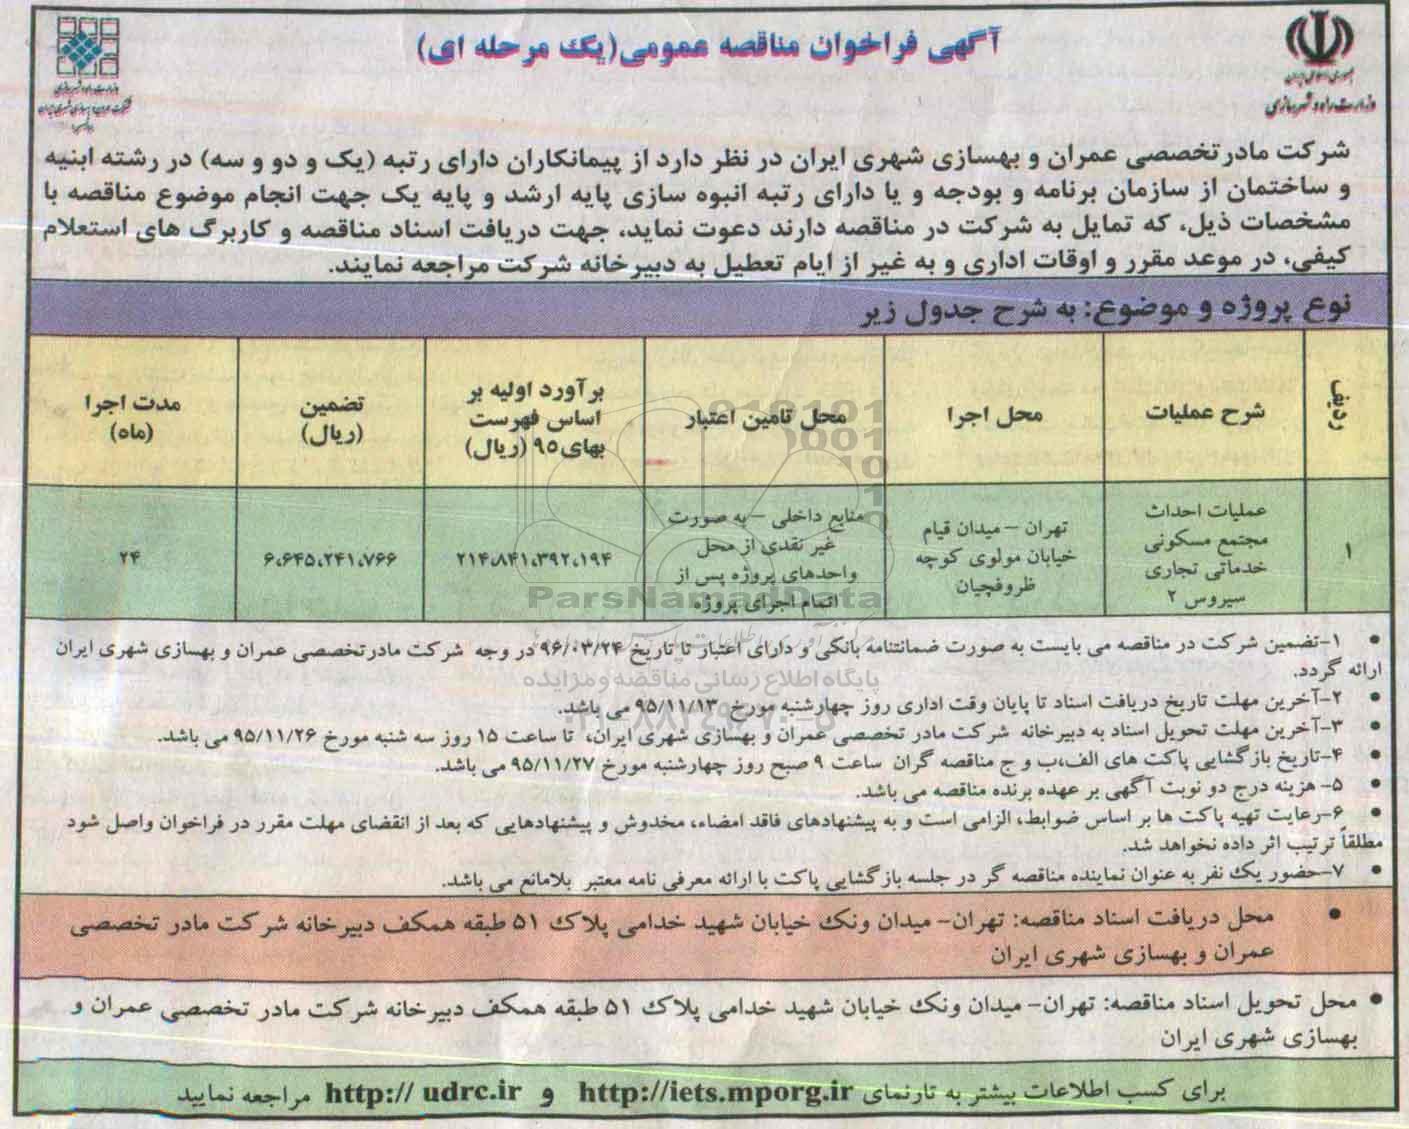 آگهی فراخوان مناقصه عمومی(یک مرحله ای)
جمهوری اسلامی ایران
وزارت راه و شهرسازی
وزارت راه و شهرسازی
شرکت مادرتخصصی عمران و بهسازی شهری ایران در نظر دارد از پیمانکاران دارای رتبه (یک و دو و سه) در رشته ابنیه
و ساختمان از سازمان برنامه و بودجه و یا دارای رتبه انبوه سازی پایه ارشد و پایه یک جهت انجام موضوع مناقصه با
مشخصات ذیل، که تمایل به شرکت در مناقصه دارند دعوت نماید، جهت دریافت اسناد مناقصه و کاربرگ های استعلام
کیفی، در موعد مقرر و اوقات اداری و به غیر از ایام تعطیل به دبیرخانه شرکت مراجعه نمایند.
نوع پروژه و موضوع: به شرح جدول زیر
ردیف
شرح عملیات
محل اجرا
محل تامین اعتبار
برآورد اولیه بر
اساس فهرست
بهای۹۵ (ریال)
تضمین
(ریال)
مدت اجرا
(ماه)
۱
عملیات احداث
مجتمع مسکونی
خدماتی تجاری
سیروس ۲
تهران – میدان قیام
خیابان مولوی کوچه
ظروفچیان
منابع داخلی – به صورت
غیر نقدی از محل
واحدهای پروژه پس از
اتمام اجرای پروژه
۲۱۴،۸۴۱،۳۹۲،۱۹۴
۶،۶۴۵،۲۴۱،۷۶۶
۲۴
ParsNamadData
پایگاه اطلاع رسانی مناقصه و مزایده
• ۱-تضمین شرکت در مناقصه می بایست به صورت ضمانتنامه بانکی و دارای اعتبار تا تاریخ ۹۶/۰۳/۲۴ در وجه شرکت مادرتخصصی عمران و بهسازی شهری ایران
ارائه گردد.
• ۲-آخرین مهلت تاریخ دریافت اسناد تا پایان وقت اداری روز چهارشنبه مورخ ۹۵/۱۱/۱۳ می باشد.
• ۳-آخرین مهلت تحویل اسناد به دبیرخانه شرکت مادر تخصصی عمران و بهسازی شهری ایران، تا ساعت ۱۵ روز سه شنبه مورخ ۹۵/۱۱/۲۶ می باشد.
• ۴-تاریخ بازگشایی پاکت های الف،ب و ج مناقصه گران ساعت ۹ صبح روز چهارشنبه مورخ ۹۵/۱۱/۲۷ می باشد.
• ۵- هزینه درج دو نوبت آگهی بر عهده برنده مناقصه می باشد.
• ۶-رعایت تهیه پاکت ها بر اساس ضوابط، الزامی است و به پیشنهادهای فاقد امضاء، مخدوش و پیشنهادهایی که بعد از انقضای مهلت مقرر در فراخوان واصل شود
مطلقاً ترتیب اثر داده نخواهد شد.
• ۷-حضور یک نفر به عنوان نماینده مناقصه گر در جلسه بازگشایی پاکت با ارائه معرفی نامه معتبر بلامانع می باشد.
• محل دریافت اسناد مناقصه: تهران- میدان ونک خیابان شهید خدامی پلاک ۵۱ طبقه همکف دبیرخانه شرکت مادر تخصصی
عمران و بهسازی شهری ایران
• محل تحویل اسناد مناقصه: تهران- میدان ونک خیابان شهید خدامی پلاک ۵۱ طبقه همکف دبیرخانه شرکت مادر تخصصی عمران و
بهسازی شهری ایران
برای کسب اطلاعات بیشتر به تارنمای http://iets.mporg.ir و http:// udrc.ir مراجعه نمایید